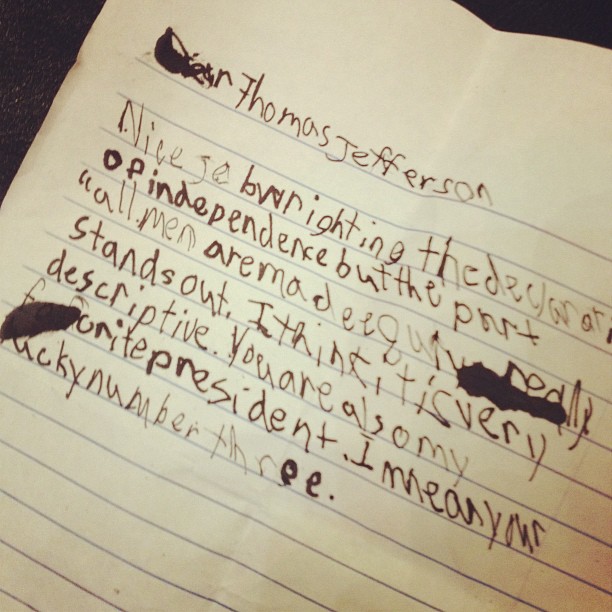 Dear Thomas Jefferson
Nice jo bwrighting the declarari
of independence but the part
"all men are made equ really
stands out. I think it is very
descriptive. You are also my
favorite president. I mean your
ucky number three.